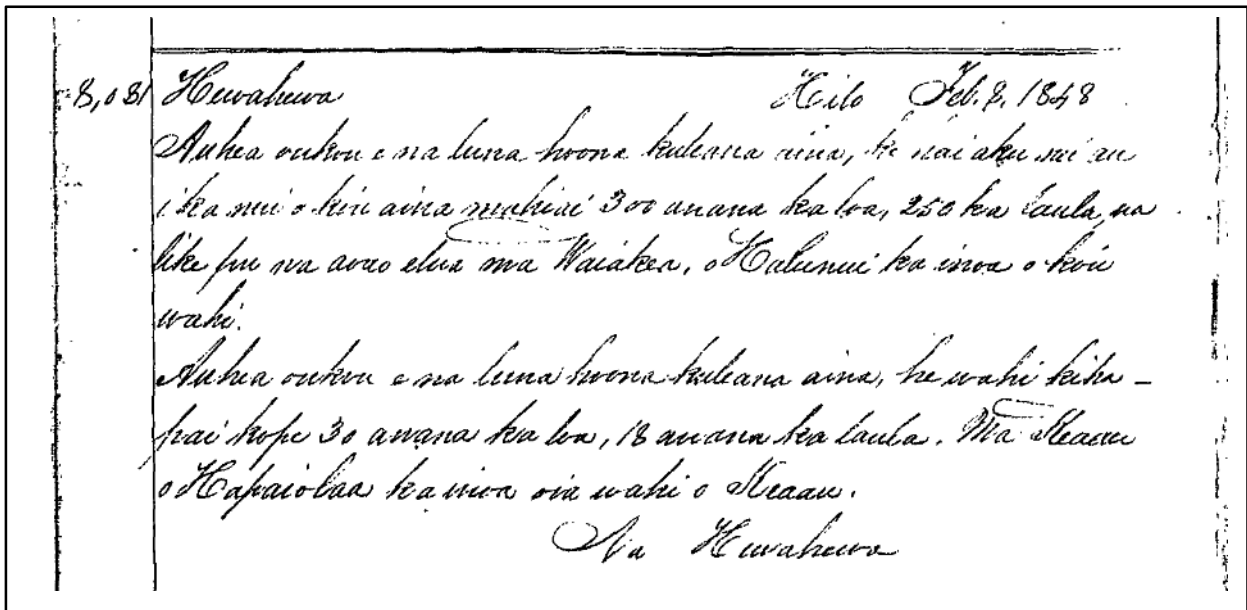 8,081 Hewahewa Hilo Feb. 8. 1848
Auhea oukou e na luna hoona kuleana aina, ke hai aku nei au
i ka nui o kou aina mahiai 300 anana ka loa, 250 ka laula, ua
like pu na aoao elua ma Waiakea, o Halunui ka inoa o kou
wahi.
Auhea oukou e na luna hoona kuleana aina, he wahi kiha-
pai kope 30 anana ka loa, 18 anana ka laula. Ma Keaau
o Hapaiolaa ka inoa oia wahi o Keaau.
Na Hewahewa